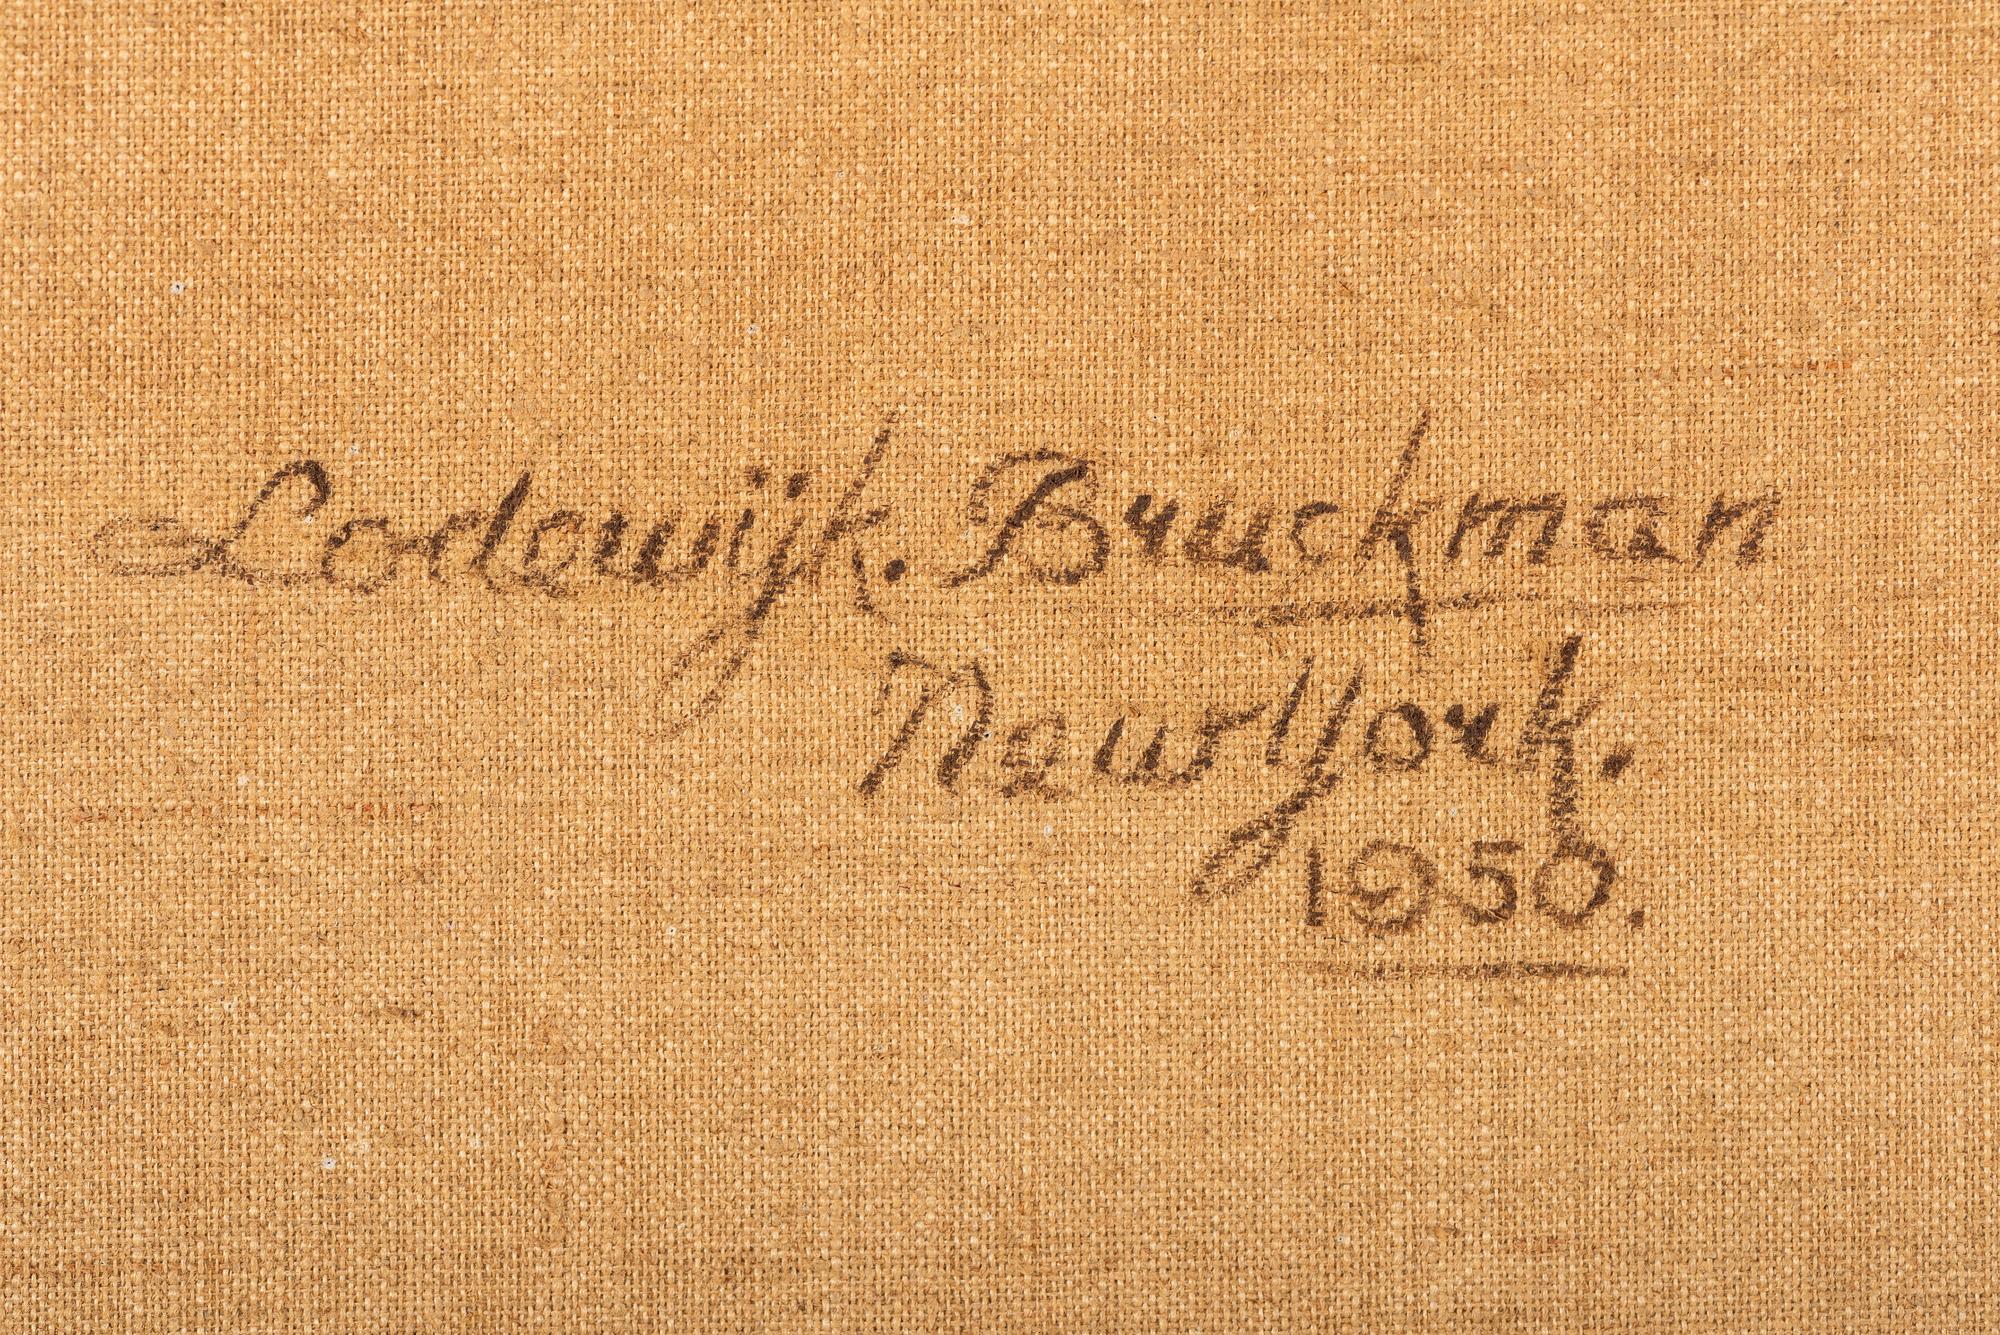 Lodewijk. Bruckman
New York.
1950.